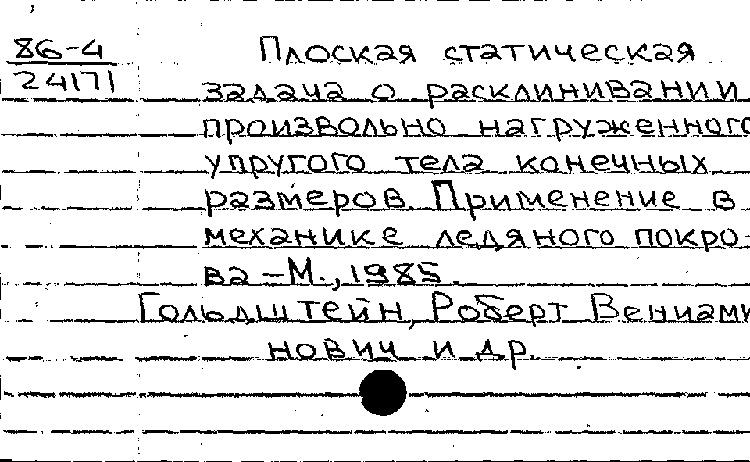 86-4
24171
Плоская статическая
задача о расклинивании
произвольно нагруженного
упругого тела конечных
размеров. Применение в
механике ледяного покро-
ва - М., 1985.
Гольдштейн, Роберт Вениами
нович и др.